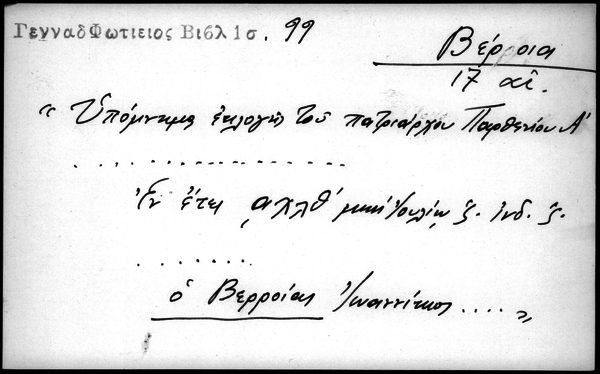 ΓενναδΦωτιειος Βιβλ 1σ. 99
Βέρροια
17 αἰ.
“ Ὑπόμνημα ἐκλογῆς τοῦ πατριάρχου Παρθενίου Α'
Ἐν ἔτει ͵αχλθ' μηνὶ Ἰουλίῳ ζ. ἰνδ. ζ.
ὁ Βερροίας Ἰωαννίκιος .... „